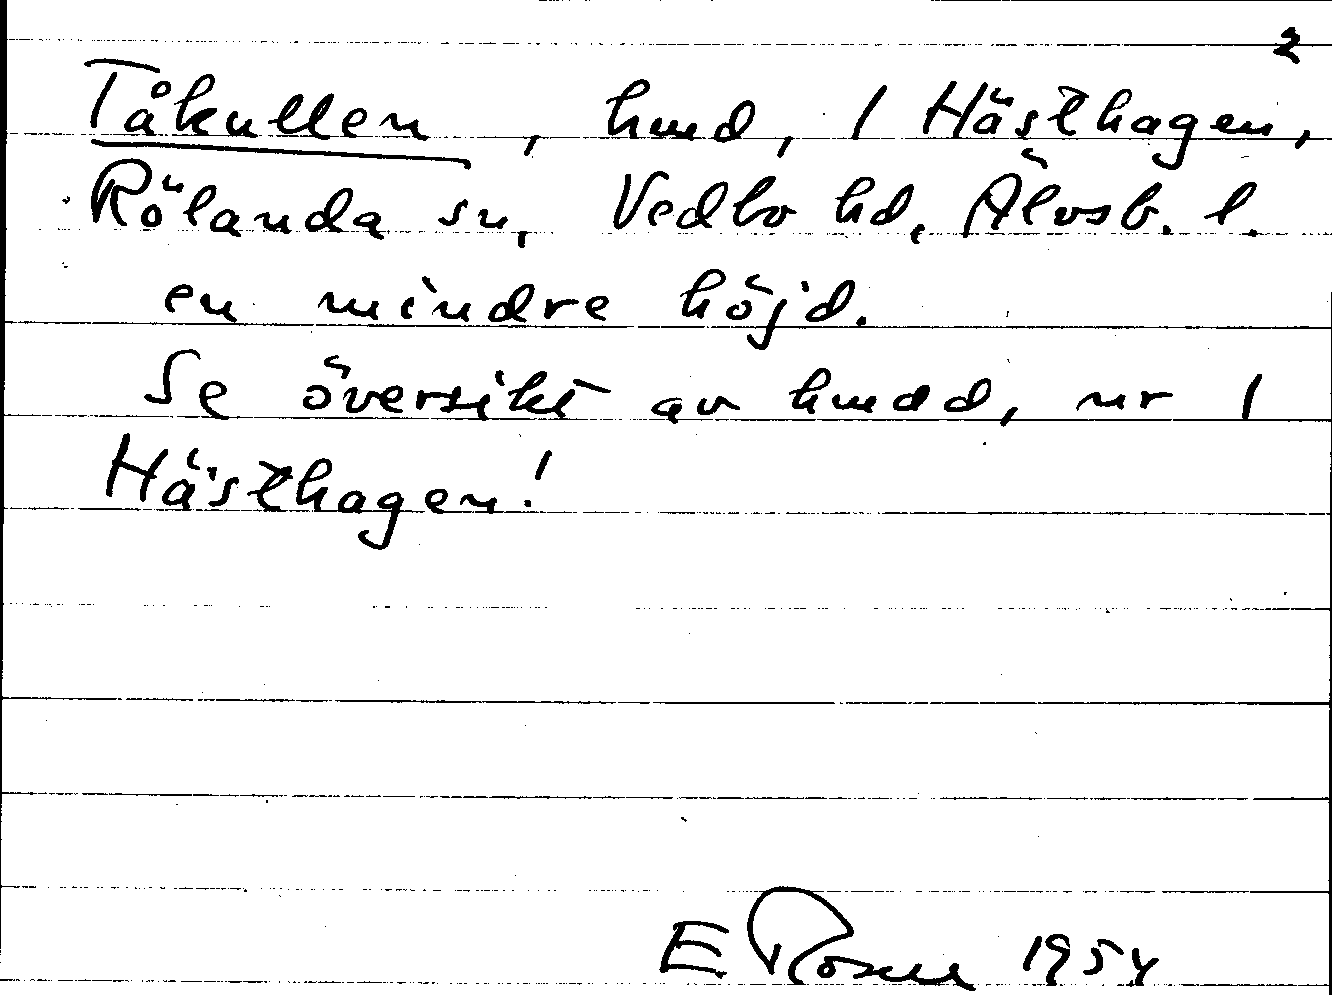 2
Tåkullen, hmd, 1 Hästhagen,
Rölanda sn, Vedbo hd, Älvsb. l.
en mindre höjd.
Se översikt av hmdd, nr 1
Hästhagen!
E Rosell 1954